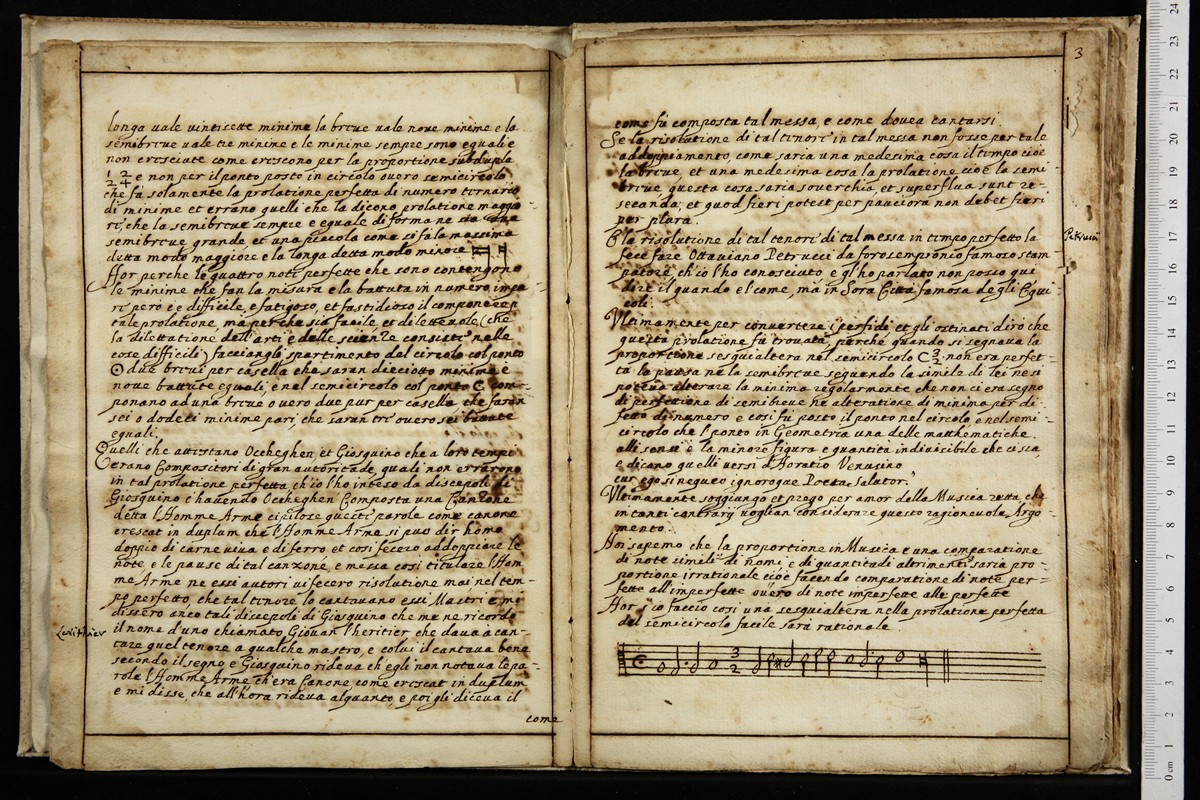 longa uale uintisette minime la breue uale noue minime e la
semibreue uale tre minime e le minime sempre sono eguali e
non cresciate come crescono per la proportione subdupla
1/2 2/4 e non per il ponto posto in circolo ouero semicircolo
che fa solamente la prolatione perfetta di numero ternario
di minime et errano quelli che la dicono prolatione maggio-
ri, che la semibreue sempre e eguale di forma ne sia una
semibreue grande et una piccola come si fa la massima
detta modo maggiore e la longa detta modo minore
Hor perche le quattro note perfette che sono contengono
le minime che fan la misura e la battuta in numero impa
ri però è e difficile, e fatigoso, et fastidioso il componere in
tale prolatione, ma perche sia facile et diletteuole (che
la dilettatione dell'arti e delle scienze consisti nelle
cose difficili) facciangli spartimento del circolo col ponto
ʘ due breui per casella che saran dieciotto minime e
noue battute eguali e nel semicircolo col ponto com-
ponano ad una breue o uero due pur per casella che saran
sei o dodeci minime pari, che saran tri ouero sei battute
eguali.
Quelli che attestano Occheghen et Giosquino che a loro tempi
erano Compositori di gran autoritade, quali non errarono
in tal prolatione perfetta, ch'io l'ho inteso da discepoli di
Giosquino c'hauendo Occheghen Composta una Canzone
detta l'Homme Armè ci pilose queste parole come canone
crescat in duplum che l'Homme Armè si puo dir homo
doppio di carne uiua e di ferro et cosi fecero addoppiare le
note, e le pause di tal canzone, e messa cosi titulare l'Hom
me Armè ne essi autori ui fecero risolutione mai nel tem-
po perfetto, che tal tinore lo cantauano essi Mastri e mi
dissero anco tali discepole di Giosquino che me ne ricordo
Lerithier
il nome d'uno chiamato Giouan l'heritier che daua a can-
tare quel tenore a qualche mastro, e colui il cantaua bene
secondo il segno e Giosquino rideua ch'egli non notaua le pa-
role l'Homme Armè ch'era Canone, come crescat in duplum
e mi disse, che all'hora rideua alquanto, e poi gli diceua il
come
3
come fù composta tal messa, e come douea cantarsi.
Se la risolutione di tal tinori in tal messa non fosse per tale
addoppiamento, come saria una medesima cosa il tempo cioè
la breue, et una medesima cosa la prolatione cioè la semi-
breue questa cosa saria souerchia, et superflua sunt re-
secanda, et quod fieri potest per pauciora non debet fieri
per plura.
E la risolutione di tal tenori di tal messa in tempo perfetto la
Petrucci
fece fare Ottauiano Petrucci da forosempronio famoso stam
patore, ch'io l'ho conosciuto e gl'ho parlato non posso qui
dire il quando e l'come, ma in Sora Città famosa de gli Equi-
coli.
Vltimamente per conuertere i perfidi et gli ostinati dirò che
questa prolatione fù trouata, perche quando si segnaua la
proportione sesquialtera nel semicircolo C 3/2 non era perfet-
ta la pausa ne la semibreue seguendo la simile di lei ne si
poteua alterare la minima regolarmente che non ci era segno
di perfettione di semibreue ne alteratione di minima per di-
fetto di numero e cosi fù posto il ponto nel circolo e nel semi-
circolo che l'ponto in Geometria una delle matthematiche
alli sensi è la minore figura e quantita indiuisibile che ci sia
e dicano quelli uersi d'Horatio Venusino
cur ego si nequeo ignoroque Poeta Salutor.
Vltimamente soggiungo et prego per amor della Musica retta, che
in tanti contrarij uoglian considerare questo ragioneuole Argo-
mento.
Noi sapemo che la proportione in Musica e una comparatione
di note simili di nomi e di quantita di altrimenti saria pro-
portione irrationale cioè facendo comparatione di note per-
fette all'imperfette ouero di note imperfette alle perfette
Hor s'io faccio cosi una sesquialtera nella prolatione perfetta
del semicircolo facile sarà rationale
3
2